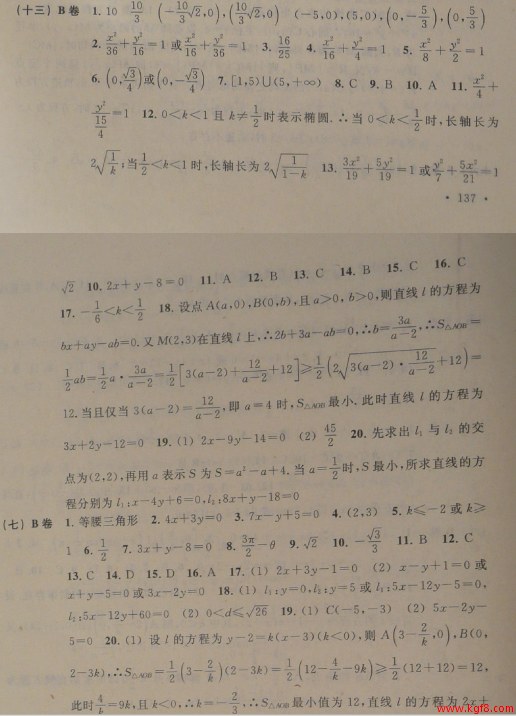 (十三) B卷 1. 10 10/3 (-10/3√2,0),(10/3√2,0) (-5,0),(5,0),(0,-5/3),(0,5/3)
2. x²/36+y²/16=1 或 x²/16+y²/36=1 3. 16/25 4. x²/16+y²/4=1 5. x²/8+y²/2=1
6. (0,√3/4)或(0,-√3/4) 7. [1,5)∪(5,+∞) 8. C 9. B 10. A 11. x²/4+
y²/(15/4)=1 12. 0<k<1 且 k≠1/2 时表示椭圆.∴当 0<k<1/2 时,长轴长为
2√(1/k);当 1/2<k<1 时,长轴长为 2√(1/(1-k)) 13. 3x²/19+5y²/19=1 或 y²/7+5x²/21=1
· 137 ·
√2 10. 2x+y-8=0 11. A 12. B 13. C 14. B 15. C 16. C
17. -1/6<k<1/2 18. 设点 A(a,0),B(0,b),且 a>0,b>0,则直线 l 的方程为
bx+ay-ab=0.又 M(2,3)在直线 l 上,∴2b+3a-ab=0,∴b=3a/(a-2),∴S△AOB=
1/2ab=1/2a·3a/(a-2)=1/2[3(a-2)+12/(a-2)+12]≥1/2(2√(3(a-2)·12/(a-2))+12)=
12.当且仅当 3(a-2)=12/(a-2),即 a=4 时,S△AOB最小.此时直线 l 的方程为
3x+2y-12=0 19. (1) 2x-9y-14=0 (2) 45/2 20. 先求出 l₁ 与 l₂ 的交
点为(2,2),再用 a 表示 S 为 S=a²-a+4.当 a=1/2时,S 最小,所求直线的方
程分别为 l₁:x-4y+6=0,l₂:8x+y-18=0
(七) B卷 1. 等腰三角形 2. 4x+3y=0 3. 7x-y+5=0 4. (2,3) 5. k≤-2 或 k≥
1 6. 1/2 7. 3x+y-8=0 8. 3π/2-θ 9. √2 10. -√3/3 11. B 12. C
13. C 14. D 15. D 16. A 17. (1) 2x+3y-1=0 (2) x-y+1=0 或
x+y-5=0 或 3x-2y=0 18. (1) l₁:y=0,l₂:y=5 或 l₁:5x-12y-5=0,
l₂:5x-12y+60=0 (2) 0<d≤√26 19. (1) C(-5,-3) (2) 5x-2y-
5=0 20. (1) 设 l 的方程为 y-2=k(x-3)(k<0),则 A(3-2/k,0),B(0,
2-3k),∴S△AOB=1/2(3-2/k)(2-3k)=1/2(12-4/k-9k)≥1/2(12+12)=12,
此时4/k=9k,且 k<0,∴k=-2/3,∴S△AOB最小值为 12,直线 l 的方程为 2x+
www.kgf8.com